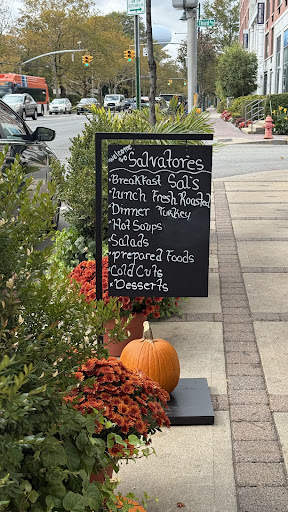 welcome
to Salvatores
• Breakfast Sal's
• Lunch Fresh Roasted
• Dinner Turkey
• Hot Soups
• Salads
• prepared Foods
• Cold Cuts
• Desserts